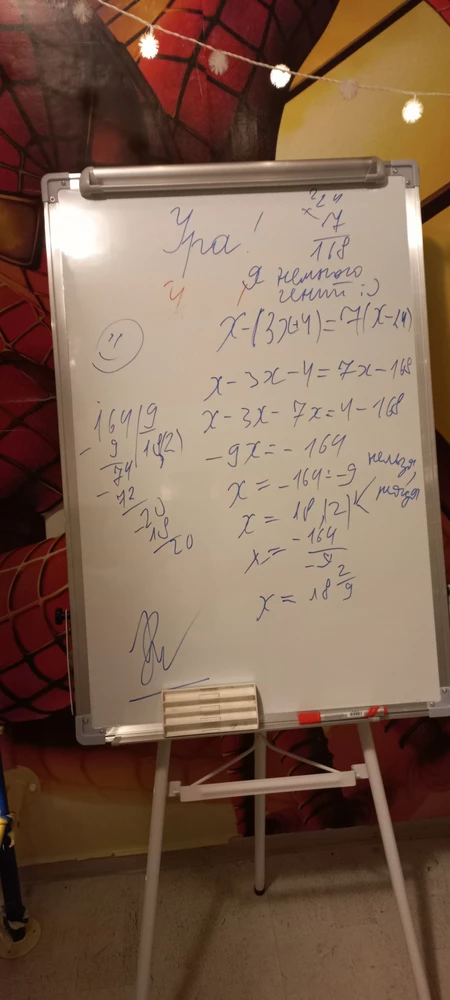 Ура!
24
× 7
168
Я немного
гений :)
x-(3x+4)=7(x-24)
x-3x-4=7x-168
x-3x-7x=4-168
-9x=-164
x=-164:-9
x=18,(2)
нельзя
x=-164/-9
x=18 2/9
164|9
-9
18,(2)
74
-72
20
-18
20